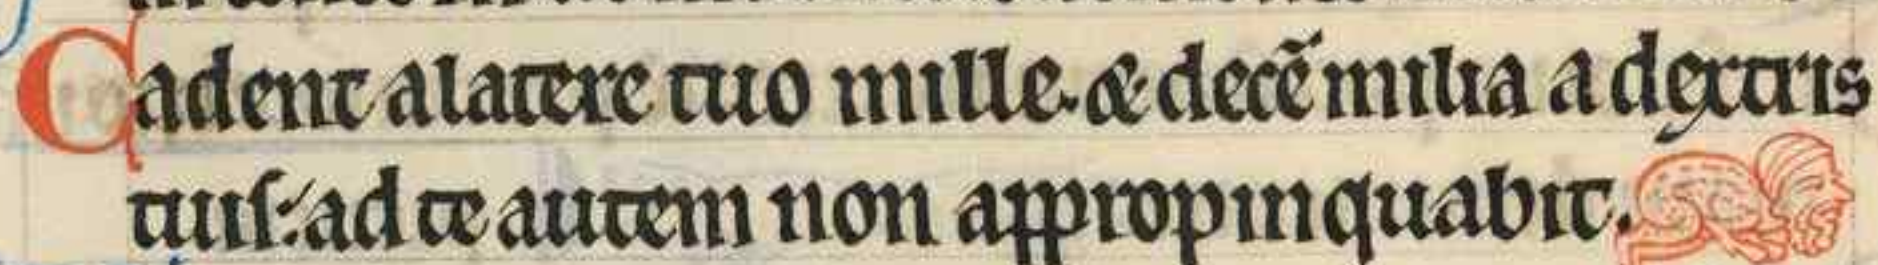 Cadent a latere tuo mille. & decē milia a dextris
tuis: ad te autem non appropinquabit.